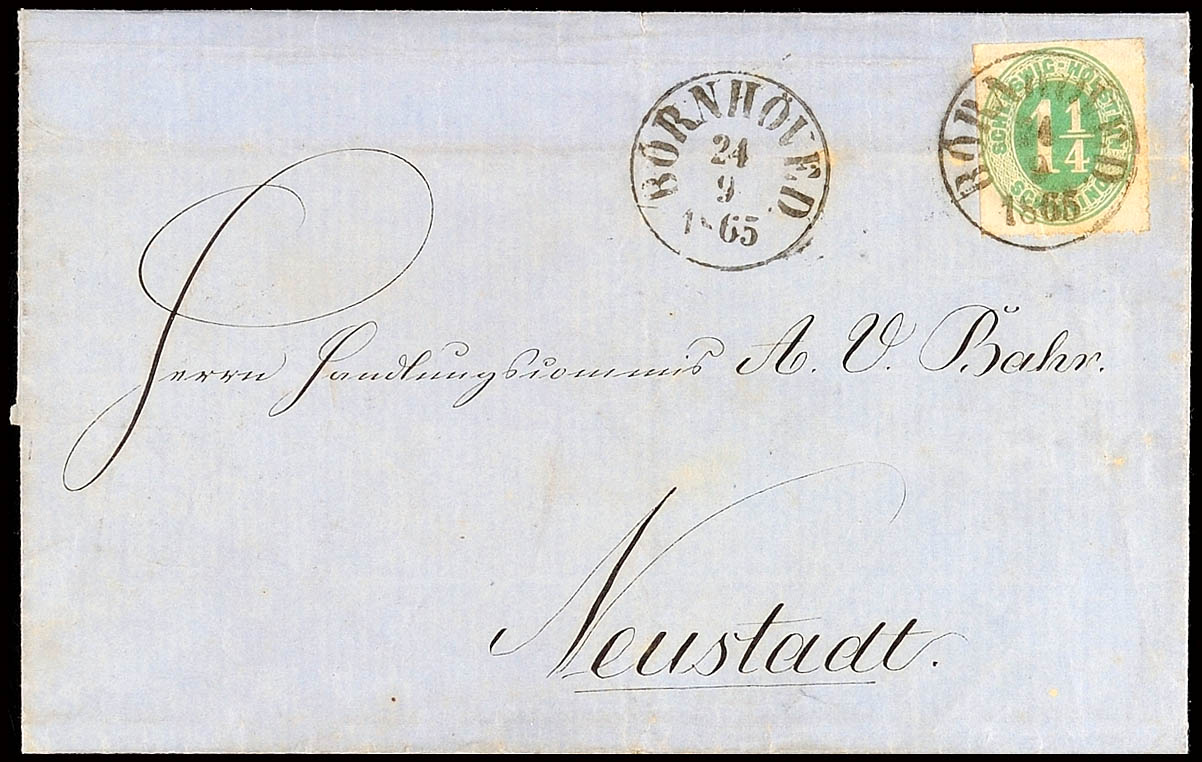 BORNHÖVED
24
9
1865
SCHLESWIG-HOLSTEIN
1 1/4
SCHILLING
BORNHÖVED
24
9
1865
Herrn Handlungscommis A. V. Bahr.
Neustadt.